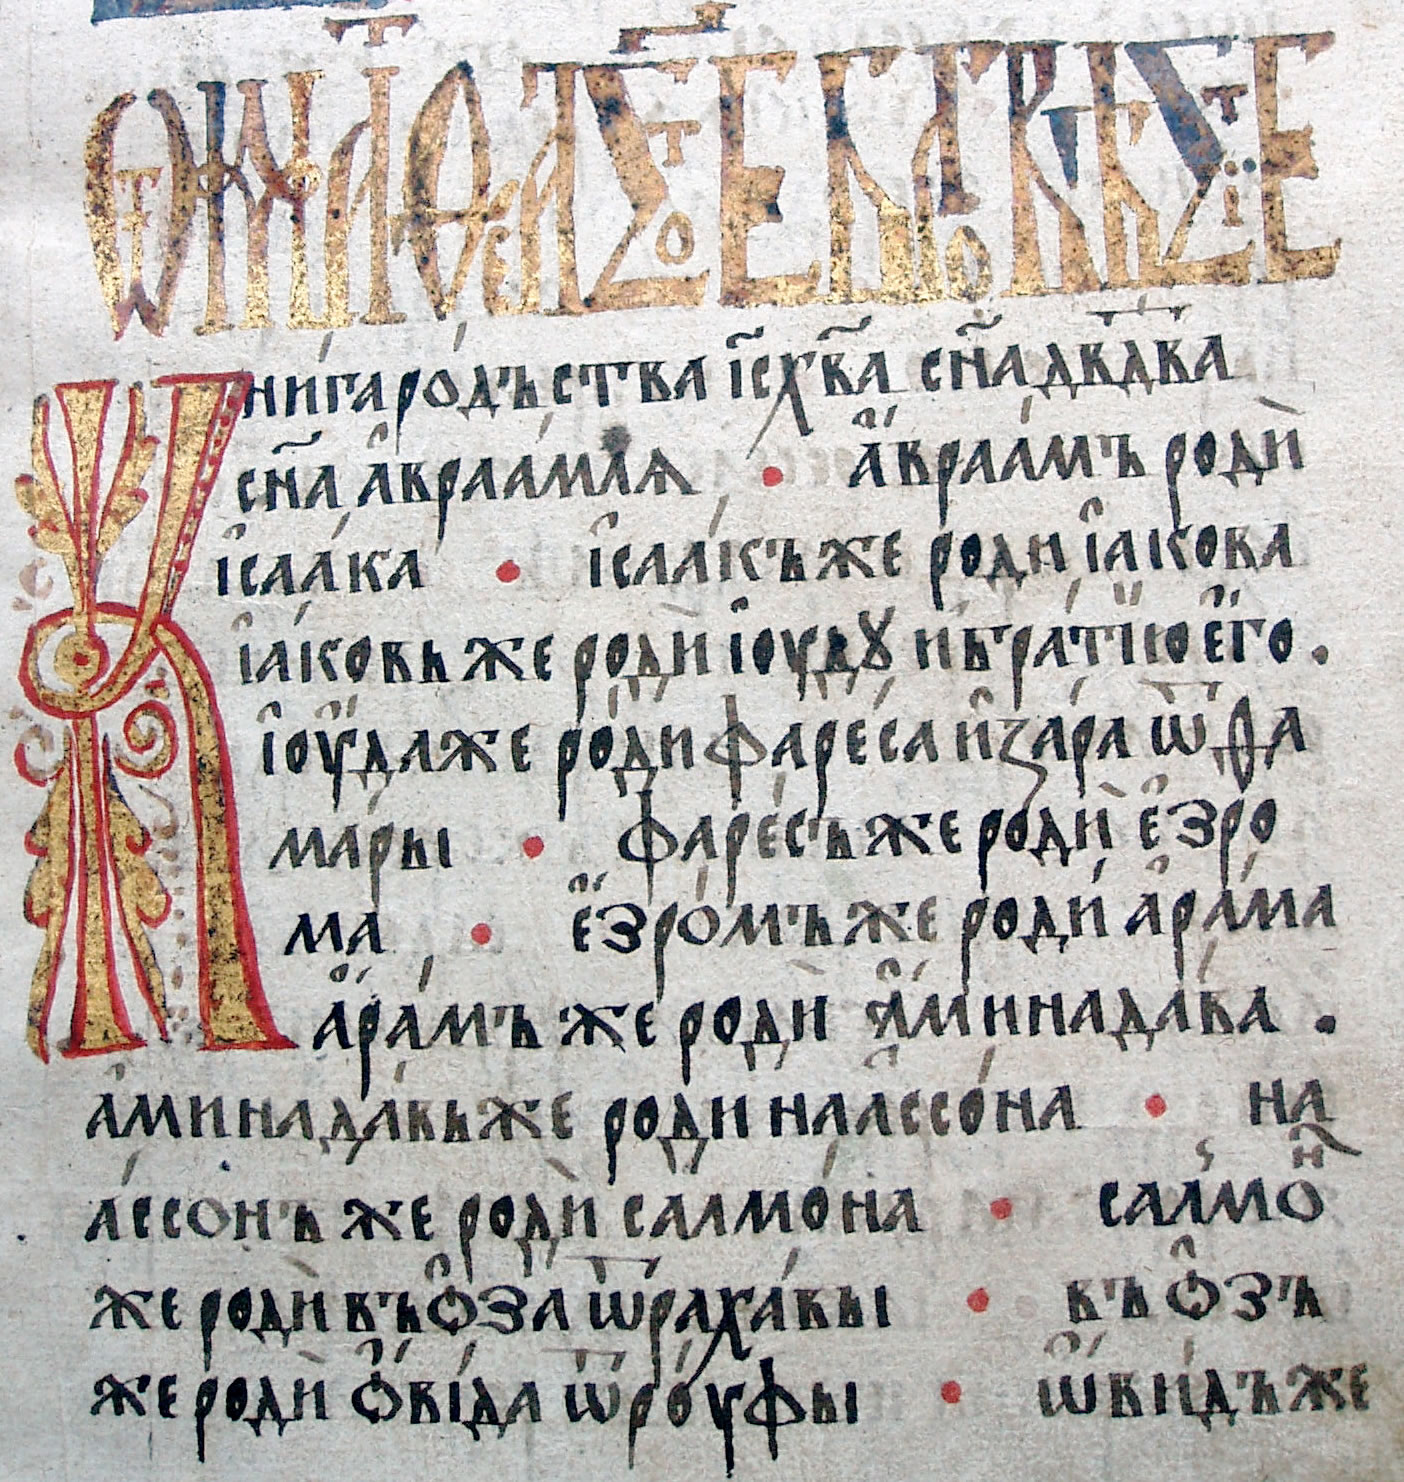 книга родъства їс҃ хв҃а сн҃а дв҃два
сн҃а авраамля • авраамъ роди
їсаака • їсаакъ же роди їакова
їаковь же роди їоудꙋ и братїю его .
їоуда же роди фареса и зара ѿ ѳа
мары • фаресъ же роди езро
ма • езромъ же роди арама
арамъ же роди аминадава .
аминадавь же роди наассона • на
ассонъ же роди салмона • салмѡⷩ
же роди въѻза ѿ рахавы • въѻзъ
же роди ѻвіда ѿ роуфы • ѡвидъ же